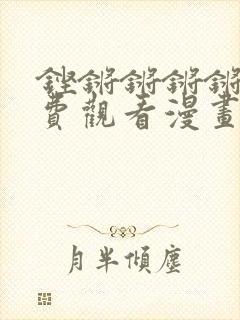 鏗鏘鏘鏘鏘
費觀看漫畫
月半傾塵